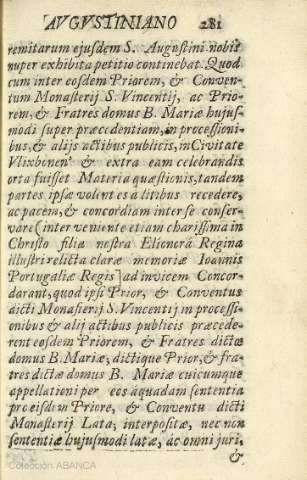 AVGVSTINIANO 281
remitarum ejusdem S. Augustini nobis
nuper exhibita petitio continebat. Quod
cum inter eosdem Priorem, & Conven-
tum Monasterij S. Vincentij, ac Prio-
rem, & Fratres domus B. Mariæ hujus-
modi super præcedentiam, in processioni-
bus, & alijs actibus publicis, in Civitate
Vlixbonen' & extra eam celebrandis
orta fuisset Materia quæstionis, tandem
partes ipsæ volentes a litibus recedere,
ac pacem, & concordiam inter se conser-
vare (interveniente etiam charissima in
Christo filia nostra Elionora Regina
illustri relicta claræ memoriæ Ioannis
Portugaliæ Regis) ad invicem Concor-
darant, quod ipsi Prior, & Conventus
dicti Monasterij S. Vincentij in processi-
onibus & alij actibus publicis præcede-
rent eosdem Priorem, & Fratres dictæ
domus B. Mariæ; dictique Prior, & fra-
tres dictæ domus B. Mariæ cuicumque
appellationi per eos à quadam sententia
pro eisdem Priore, & Conventu dicti
Monasterij Lata; interpositæ, nec non
sententiæ hujusmodi latæ, ac omni juri,
&
Colección ABANCA